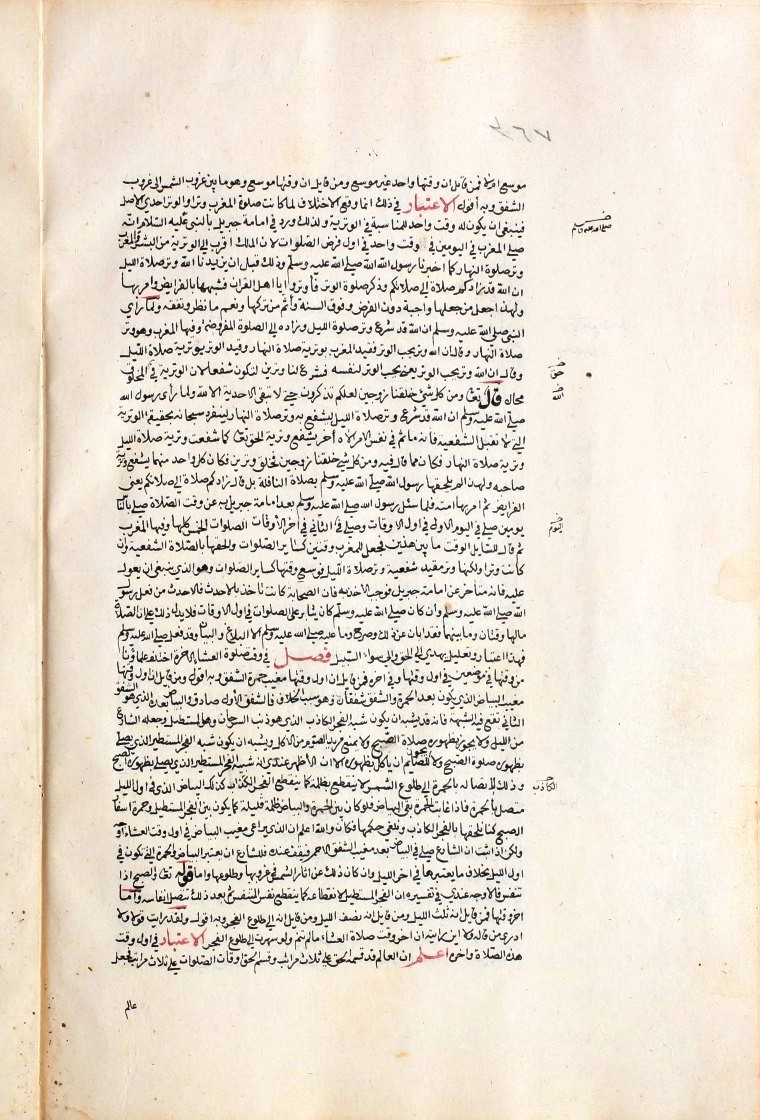 ٤٦٧
موسع ام لا فمن قايل ان وقتها واحد غير موسع ومن قايل ان وقتها موسع وهو ما بين غروب الشمس الى غروب
الشفق وبه أقول الاعتبار في ذلك انما وقع الاختلاف لما كانت صلوة المغرب وترا والوتر احدي الاصل
فينبغي ان يكون له وقت واحد للمناسبة في الوترية ولذلك ورد في امامة جبريل بالنبي عليه السلام انه
صلى المغرب في اليومين في وقت واحد في اول فرض الصلوات لان الملك اقرب الى الوترية من البشر والمغرب
وتر صلوة النهار كما اخبرنا رسول الله صلى الله عليه وسلم وذلك قبل ان يزيدنا الله وتر صلاة الليل
ان الله قد زادكم صلاة الى صلاتكم وذكر صلوة الوتر فأوتروا يا اهل القران فشبهها بالفرايض وامر بها
ولهذا جعل من جعلها واجبة دون الفرض وفوق السنة وأثم من تركها ونعم ما نظر وتفقه ولما رأى
النبي صلى الله عليه وسلم ان الله قد شرع وتر صلوة الليل وزاده الى الصلوة المفروضة وفيها المغرب وهو وتر
صلاة النهار وقال ان الله وتر يحب الوتر فقيد المغرب بوترية صلاة النهار وقيد الوتر بوترية صلاة الليل
وقال ان الله وتر يحب الوتر يعني يحب الوتر لنفسه فشرع لنا وترين لتكون شفعا لان الوترية في المخلوق
محال قال تعالى ومن كل شئ خلقنا زوجين لعلكم تذكرون حتى لا تبقى الاحدية الا لله ولما رأى رسول الله
صلى الله عليه وسلم ان الله قد شرع وتر صلاة الليل ليشفع به وتر صلاة النهار لينفرد سبحانه بحقيقة الوترية
التي لا تقبل الشفعية فانه ما ثم في نفس الامر الاه آخر يشفع وترية الحق تعالى كما شفعت وترية صلاة الليل
وترية صلاة النهار فكان مما قال فيه ومن كل شئ خلقنا زوجين فخلق وترين فكان كل واحد منهما يشفع وترية
صاحبه ولهذا لم يلحقها رسول الله صلى الله عليه وسلم بصلاة النافلة بل قال زادكم صلاة الى صلاتكم يعني
الفرايض ثم امر بها امته فلما سئل رسول الله صلى الله عليه وسلم بعد امامة جبريل به عن وقت الصلاة صلى بالناس
يومين صلى في اليوم الاول في اول الاوقات وصلى في الثاني في اخر الاوقات الصلوات الخمس كلها وفيها المغرب
ثم قال للسائل الوقت ما بين هذين فجعل للمغرب وقتين كساير الصلوات والحقها بالصلاة الشفعية وان
كانت وترا ولكنها وتر مقيد شفعية وتر صلاة الليل فوسع وقتها كساير الصلوات وهو الذي ينبغي ان يعول
عليه فانه متأخر عن امامة جبريل فوجب الاخذ به فان الصحابة كانت تأخذ بالاحدث فالاحدث من فعل رسول
الله صلى الله عليه وسلم وان كان صلى الله عليه وسلم كان يثابر على الصلوات في اول الاوقات فلا يدل ذلك على ان الصلاة
ما لها وقتان وما بينهما فقد ابان عن ذلك وصرح وما عليه صلى الله عليه وسلم الا البلاغ والبيان وقد فعل صلى الله عليه وسلم
فهذا اعتبار وتعليل يهدي الى الحق والى سواء السبيل فصل في وقت صلوة العشاء الاخرة اختلف علماؤنا
من وقتها في موضعين في اول وقتها وفي اخره فمن قايل ان اول وقتها مغيب حمرة الشفق وبه اقول ومن قايل ان اول وقتها
مغيب البياض الذي يكون بعد الحمرة والشفق شفقان وهو سبب الخلاف فالشفق الأول صادق والبياض بعده الذي هو الشفق
الثاني تقع فيه الشبهة فانه قد يشبه ان يكون شبه الفجر الكاذب الذي هو ذنب السرحان وهو المستطيل وجعله الشارع
من الليل ولا يجوز بظهوره صلاة الصبح ولا يمنع مريد الصوم من الاكل ويشبه ان يكون شبه الفجر المستطير الذي يصلى
بظهوره صلوة الصبح ولا يجوز للصائم ان يأكل بظهوره الا ان الاظهر عندي انه شبه الفجر المستطير الذي يصلى بظهوره الصبح
وذلك لاتصاله بالحمرة الى طلوع الشمس لا ينقطع بظلمة كما ينقطع الفجر الكاذب كذلك البياض الذي في اول الليل
متصل بالحمرة فاذا غابت الحمرة بقي البياض فلو كان بين الحمرة والبياض ظلمة قليلة كما يكون بين الفجر المستطيل وحمرة اسفار
الصبح كنا نلحقها بالفجر الكاذب ونلغي حكمها فكان والله اعلم ان الذي يراعى مغيب البياض في اول وقت العشاء أوجه
ولكن اذا ثبت ان الشارع صلى في البياض بعد مغيب الشفق الاحمر فيقف عنده فللشارع ان يعتبر البياض والحمرة التي تكون في
اول الليل بخلاف ما يعتبرهما في اخر الليل وان كان ذلك عن اثار الشمس في غروبها وطلوعها واما قوله تعالى والصبح اذا
تنفس فالاوجه عندي في تفسيره ان الفجر المستطيل لانقطاعه كما ينقطع نفس المتنفس ثم بعد ذلك تتصل انفاسه واما
اخر وقتها فمن قايل انه ثلث الليل ومن قايل انه نصف الليل ومن قايل انه الى طلوع الفجر وبه اقول ولقد رايت قولا ولا
ادري من قاله ولا اين رايته ان اخر وقت صلاة العشاء ما لم تنم ولو سهرت الى طلوع الفجر الاعتبار في اول وقت
هذه الصلاة واخره اعلم ان العالم قد قسمه الحق على ثلاث مراتب وقسم الحق اوقات الصلوات على ثلاث مراتب فجعل
عالم
صلى الله عليه وسلم
حق
الله
اليوم
الكاذب